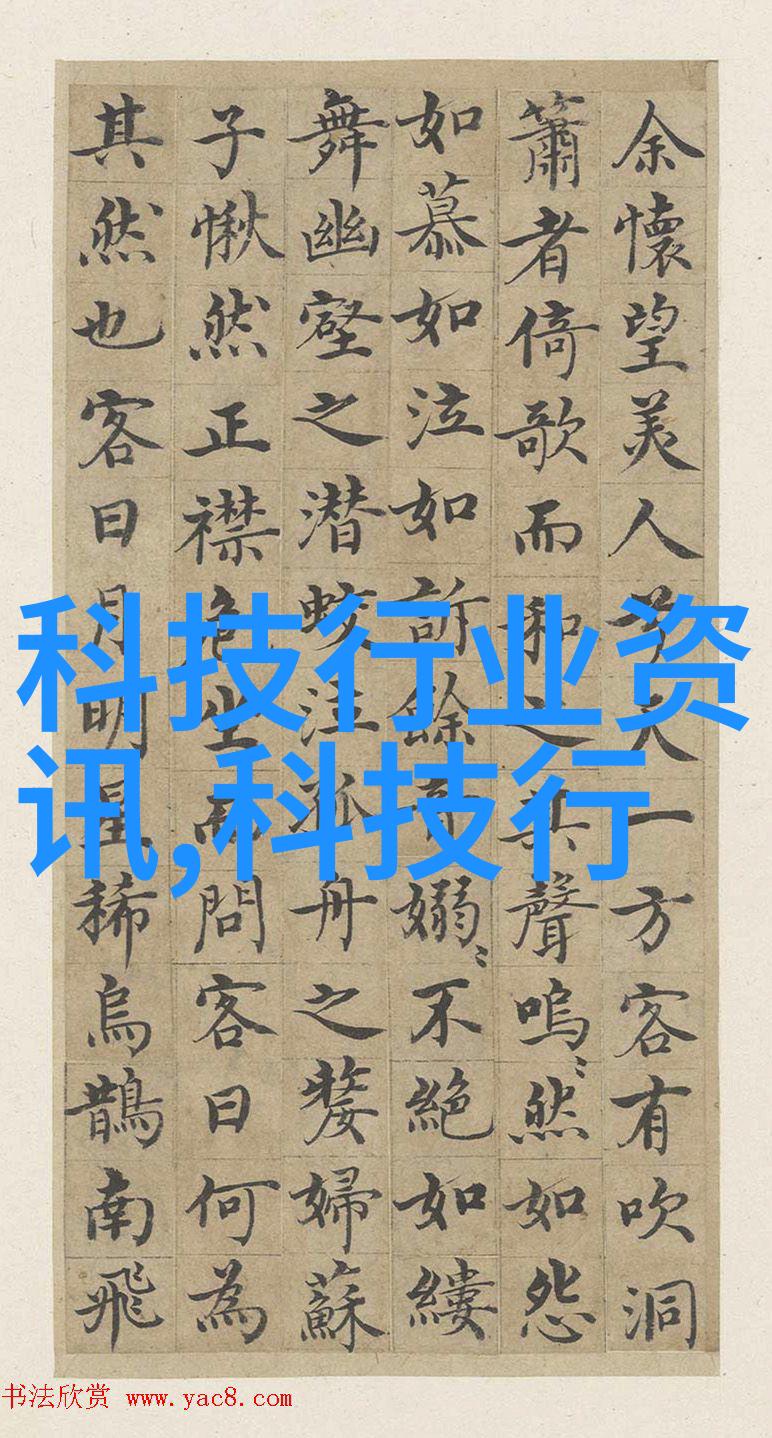 余懷望美人兮天一方客有吹洞
簫者倚歌而和之其聲嗚〻然如怨
如慕如泣如訴餘音嫋〻不絕如縷
舞幽壑之潜蛟泣孤舟之嫠婦蘇
子愀然正襟危坐而問客曰何為
其然也客曰月明星稀烏鵲南飛
科技行业资
讯,科技行
书法欣赏 www.yac8.com